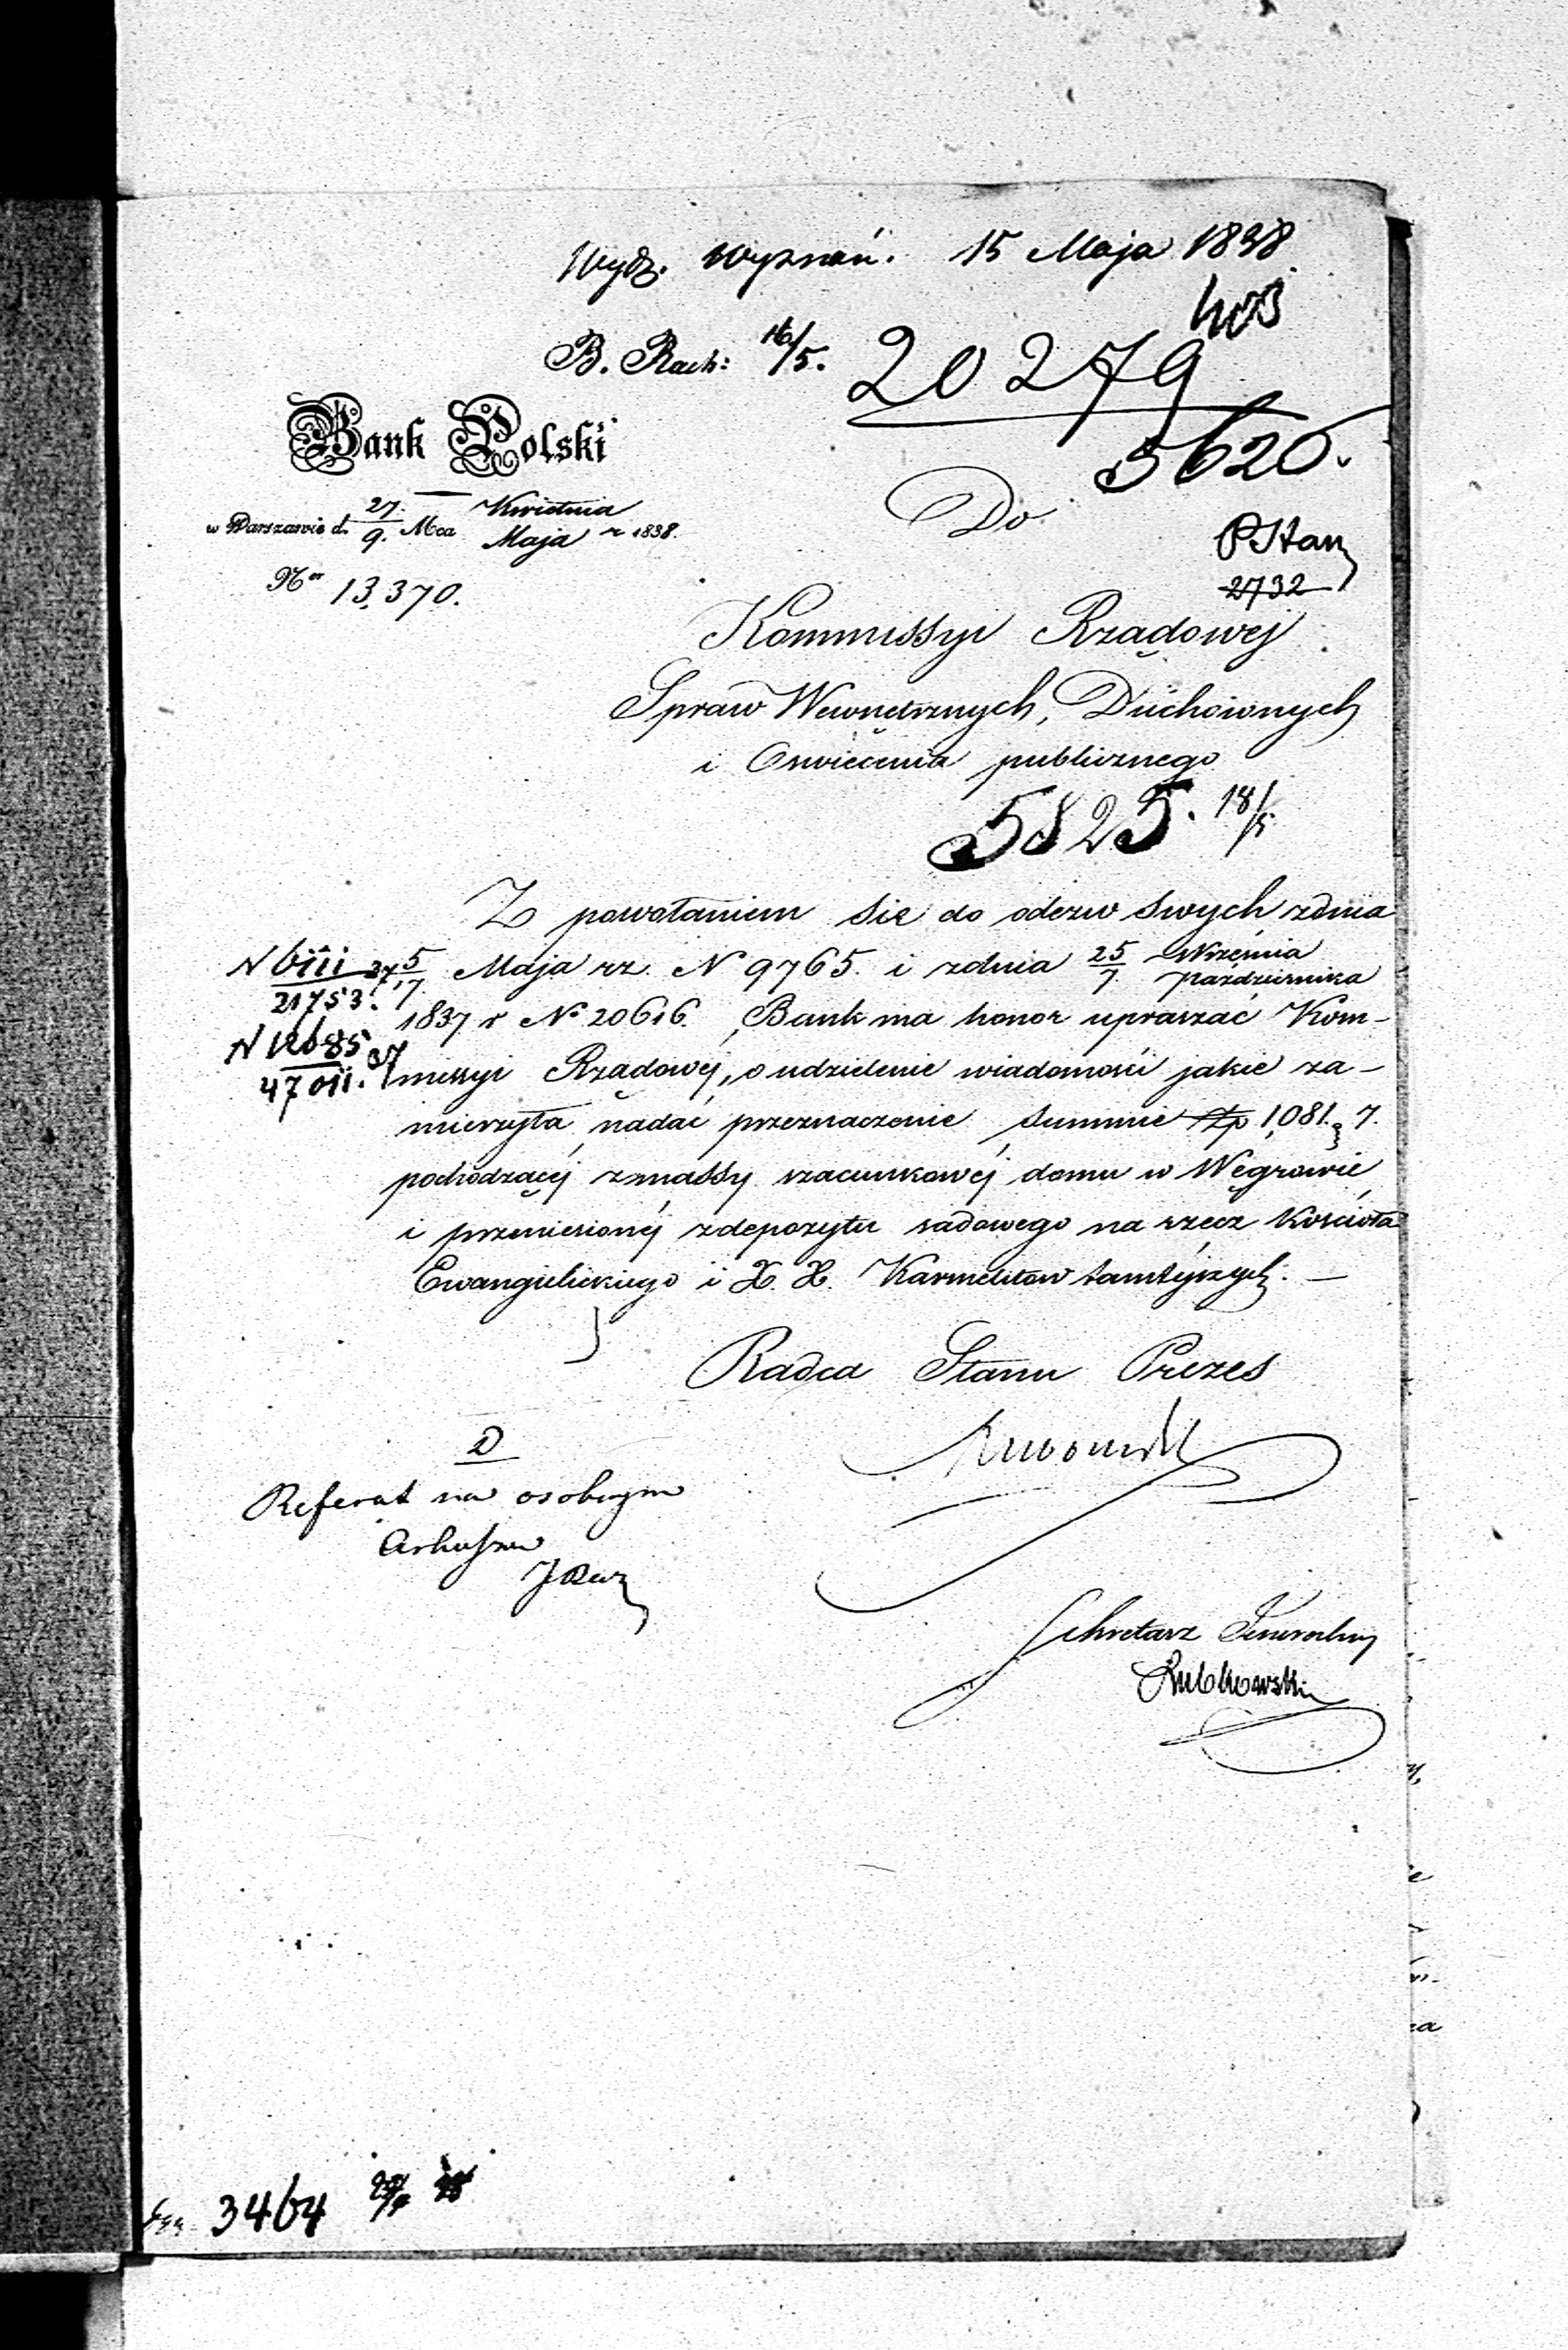 Wydz. Wyznań. 15 Maja 1838
B. Rach: 16/5. 20279
5620.
Bank Polski
w Warszawie d. 27./9. Mca Kwietnia/Maja r 1838.
Ner 13,370.
Do
PStan
2732
Kommissyi Rządowej
Spraw Wewnętrznych, Duchownych
i Oswiecenia publicznego
5825. 18/5
Z powołaniem się do odezw swych zdnia
N 6111/21753.37 5/17 Maja rz. N 9765. i zdnia 25/7 Września/Października
N 12685/47011.37 1837 r No 20616. Bank ma honor upraszać Kom-
missyi Rządowéj, o udzielenie wiadomości jakie za-
mierzyła nadać przeznaczenie summie złp 1,081. 7.
pochodzącéj zmassy szacunkowéj domu w Węgrowie
i przeniesionéj zdepozytu sądowego na rzecz Kościoła
Ewangielickiego i X. X. Karmelitow tamtéjszych. —
Radca Stanu Prezes
D
Referat na osobnym
Arkuszu
Sekretarz Generalny
Lubkowski
3464